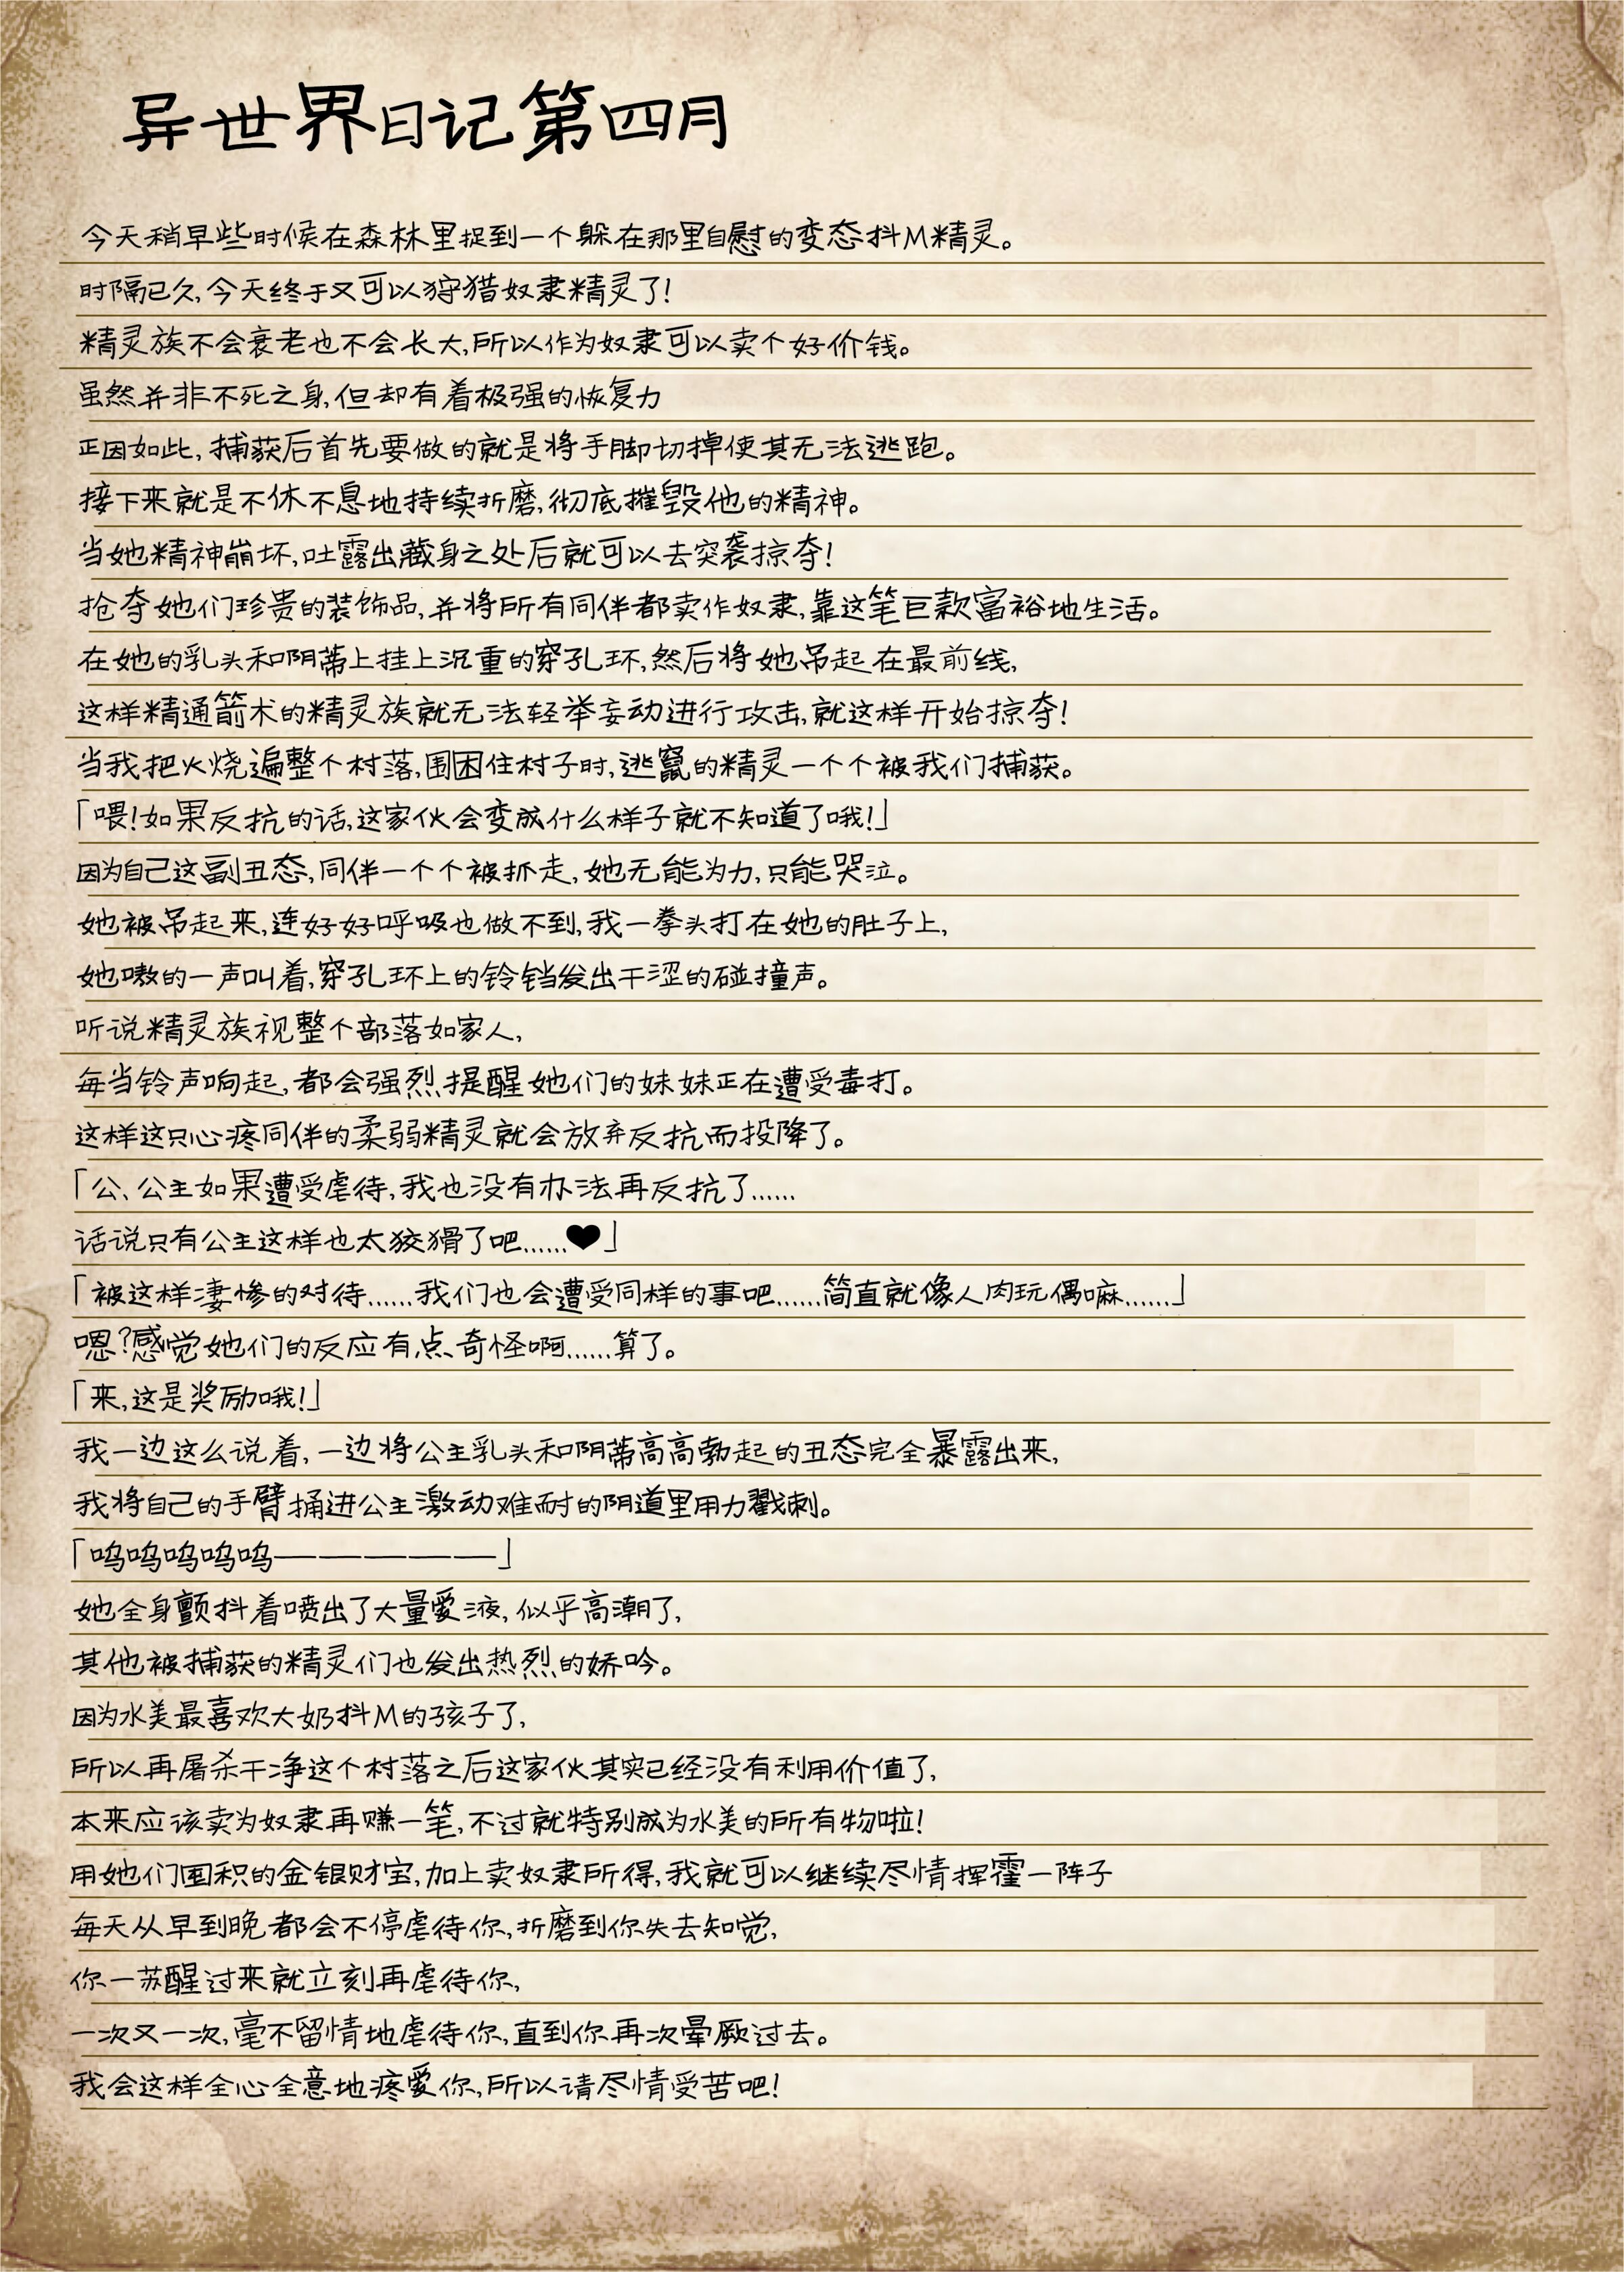 异世界日记第四月
今天稍早些时候在森林里捉到一个躲在那里自慰的变态抖M精灵。
时隔已久,今天终于又可以狩猎奴隶精灵了!
精灵族不会衰老也不会长大,所以作为奴隶可以卖个好价钱。
虽然并非不死之身,但却有着极强的恢复力
正因如此,捕获后首先要做的就是将手脚切掉使其无法逃跑。
接下来就是不休不息地持续折磨,彻底摧毁他的精神。
当她精神崩坏,吐露出藏身之处后就可以去突袭掠夺!
抢夺她们珍贵的装饰品,并将所有同伴都卖作奴隶,靠这笔巨款富裕地生活。
在她的乳头和阴蒂上挂上沉重的穿孔环,然后将她吊起在最前线,
这样精通箭术的精灵族就无法轻举妄动进行攻击,就这样开始掠夺!
当我把火烧遍整个村落,围困住村子时,逃窜的精灵一个个被我们捕获。
「喂!如果反抗的话,这家伙会变成什么样子就不知道了哦!」
因为自己这副丑态,同伴一个个被抓走,她无能为力,只能哭泣。
她被吊起来,连好好呼吸也做不到,我一拳头打在她的肚子上,
她嗷的一声叫着,穿孔环上的铃铛发出干涩的碰撞声。
听说精灵族视整个部落如家人,
每当铃声响起,都会强烈提醒她们的妹妹正在遭受毒打。
这样这只心疼同伴的柔弱精灵就会放弃反抗而投降了。
「公、公主如果遭受虐待,我也没有办法再反抗了……
话说只有公主这样也太狡猾了吧……♥」
「被这样凄惨的对待……我们也会遭受同样的事吧……简直就像人肉玩偶嘛……」
嗯?感觉她们的反应有点奇怪啊……算了。
「来,这是奖励哦!」
我一边这么说着,一边将公主乳头和阴蒂高高勃起的丑态完全暴露出来,
我将自己的手臂捅进公主激动难耐的阴道里用力戳刺。
「呜呜呜呜呜——————」
她全身颤抖着喷出了大量爱液,似乎高潮了,
其他被捕获的精灵们也发出热烈的娇吟。
因为水美最喜欢大奶抖M的孩子了,
所以再屠杀干净这个村落之后这家伙其实已经没有利用价值了,
本来应该卖为奴隶再赚一笔,不过就特别成为水美的所有物啦!
用她们囤积的金银财宝,加上卖奴隶所得,我就可以继续尽情挥霍一阵子
每天从早到晚都会不停虐待你,折磨到你失去知觉,
你一苏醒过来就立刻再虐待你,
一次又一次,毫不留情地虐待你,直到你再次晕厥过去。
我会这样全心全意地疼爱你,所以请尽情受苦吧!